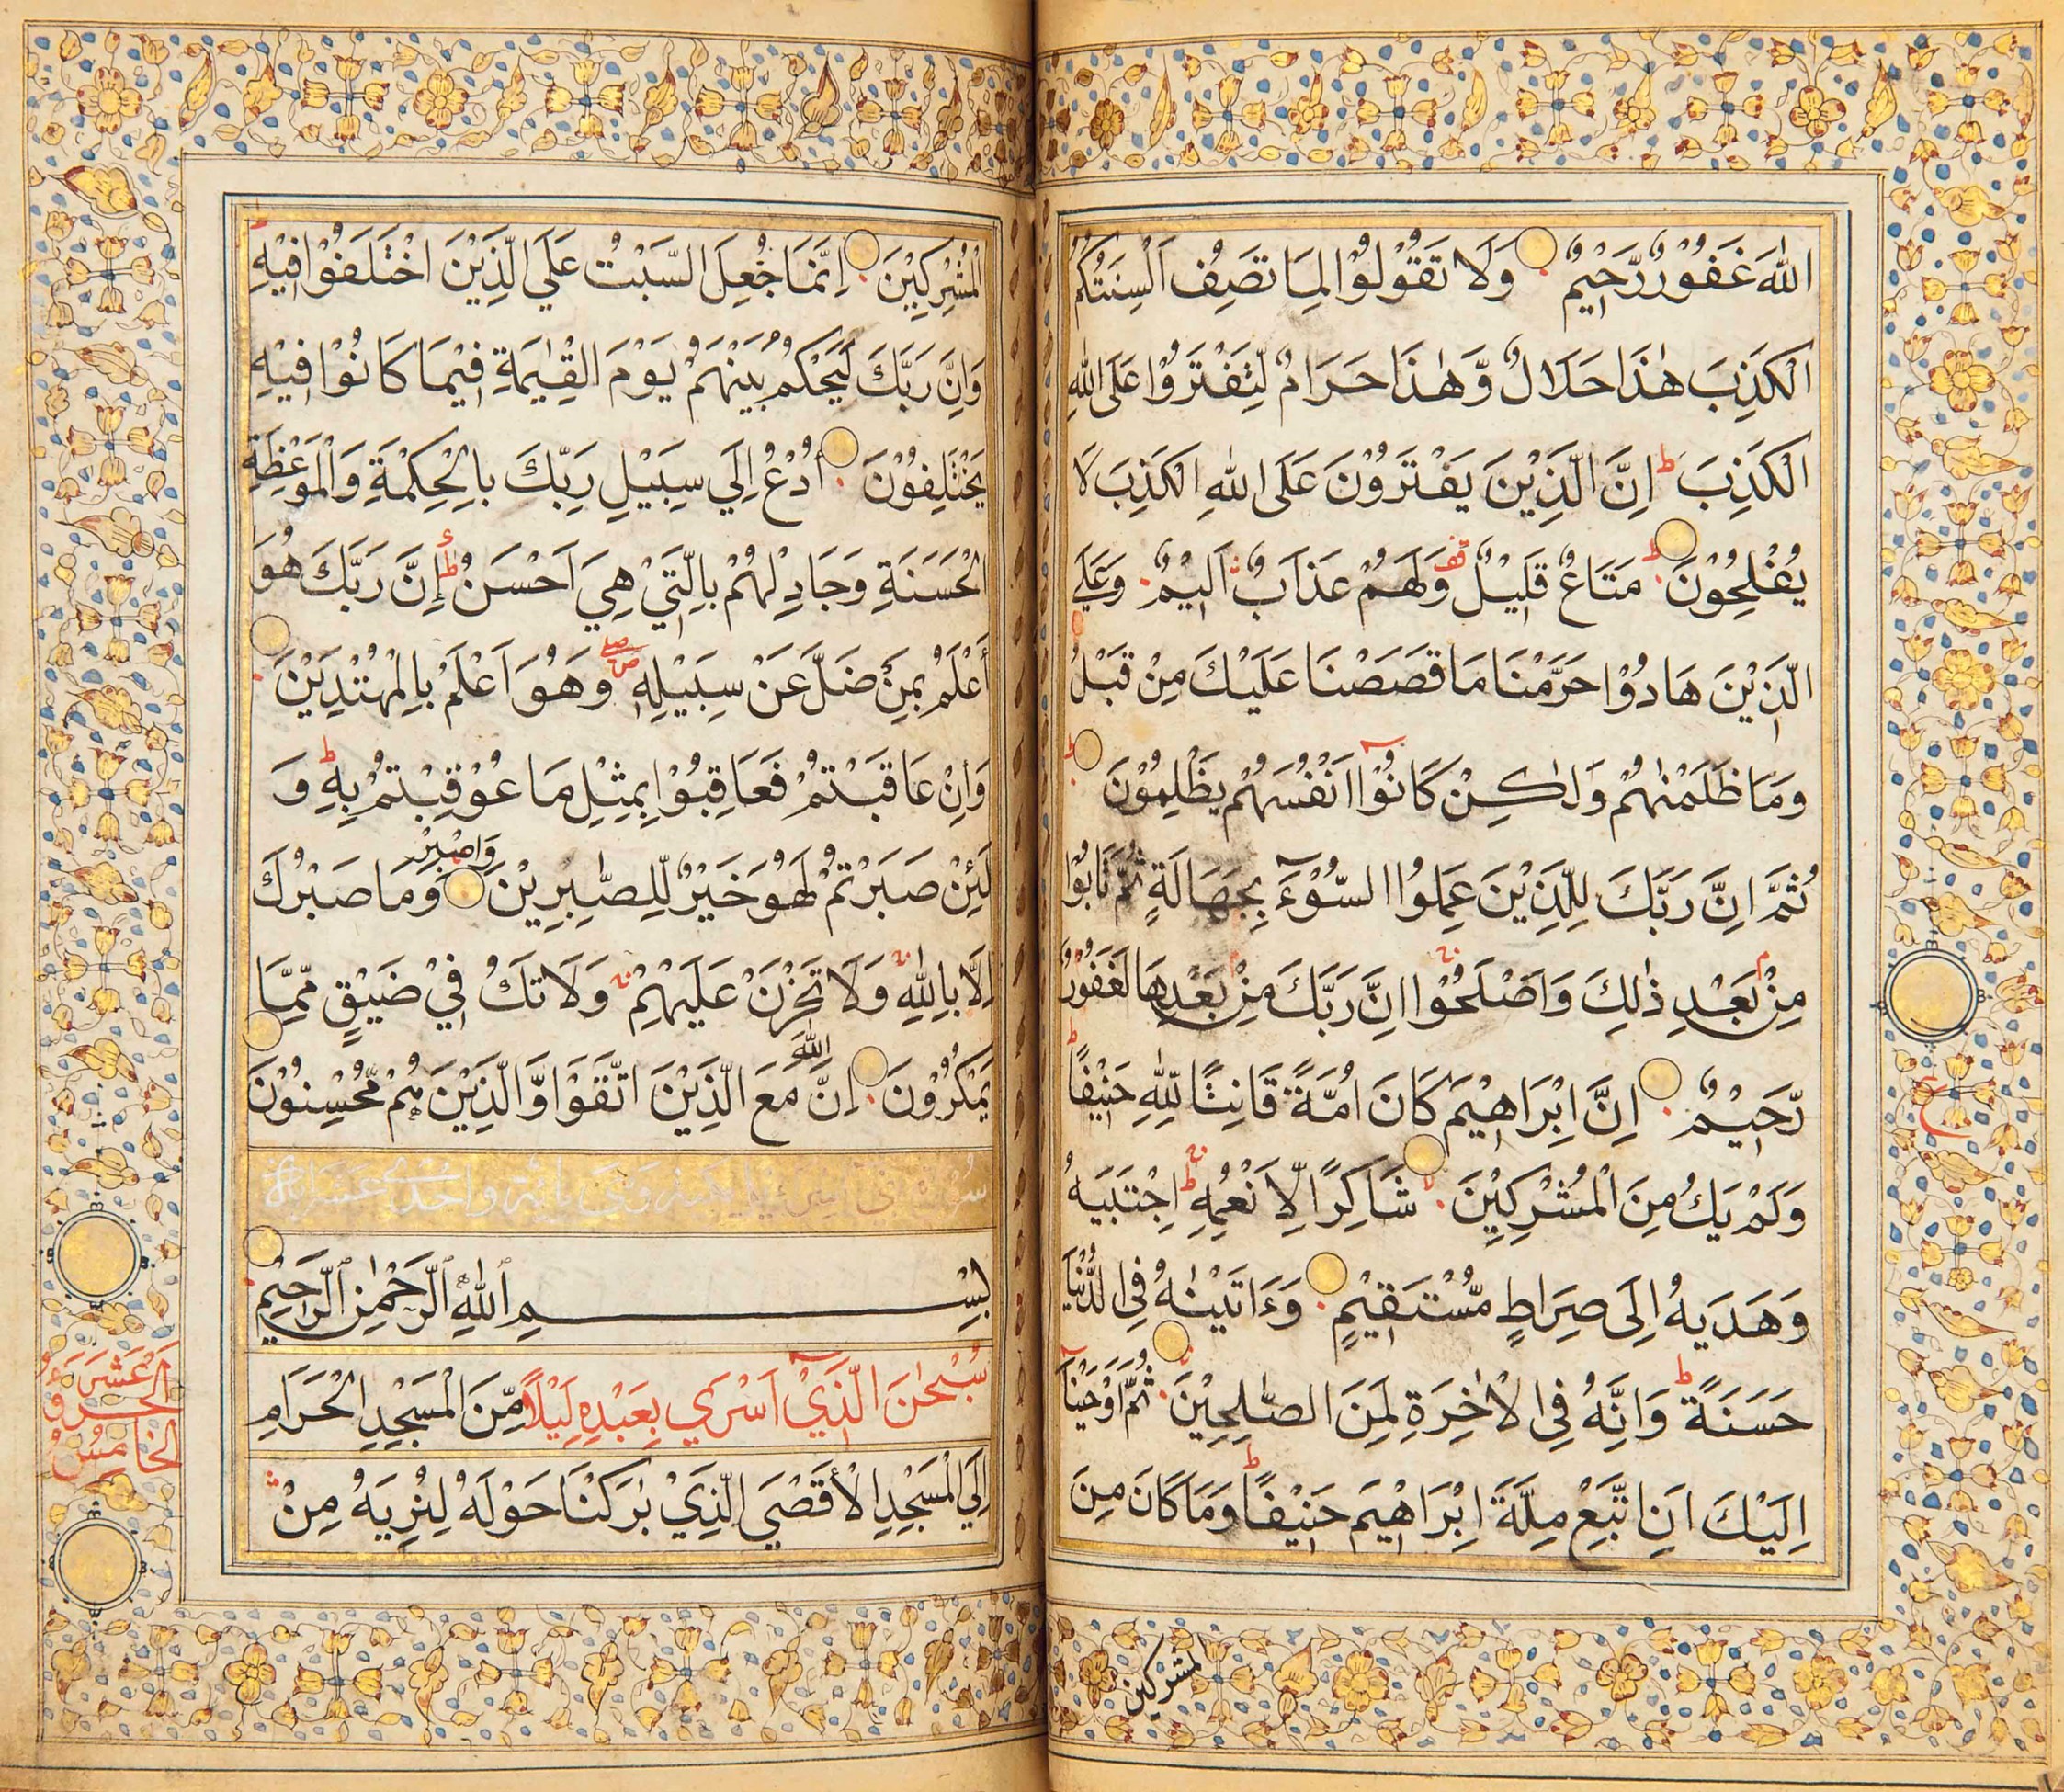 اللّٰهَ غَفُوْرٌ رَّحِيْمٌ وَلَا تَقُوْلُوْا لِمَا تَصِفُ اَلْسِنَتُكُمُ
الْكَذِبَ هٰذَا حَلَالٌ وَّهٰذَا حَرَامٌ لِّتَفْتَرُوْا عَلَى اللّٰهِ
الْكَذِبَ ط اِنَّ الَّذِيْنَ يَفْتَرُوْنَ عَلَى اللّٰهِ الْكَذِبَ لَا
يُفْلِحُوْنَ ط مَتَاعٌ قَلِيْلٌ قف وَلَهُمْ عَذَابٌ اَلِيْمٌ وَعَلَي
الَّذِيْنَ هَادُوْا حَرَّمْنَا مَا قَصَصْنَا عَلَيْكَ مِنْ قَبْلُ
وَمَا ظَلَمْنٰهُمْ وَلٰكِنْ كَانُوْٓا اَنْفُسَهُمْ يَظْلِمُوْنَ ط
ثُمَّ اِنَّ رَبَّكَ لِلَّذِيْنَ عَمِلُوا السُّوْٓءَ بِجَهَالَةٍ ثُمَّ تَابُوْا
مِنْ بَعْدِ ذٰلِكَ وَاَصْلَحُوْٓا اِنَّ رَبَّكَ مِنْ بَعْدِهَا لَغَفُوْرٌ
رَّحِيْمٌ اِنَّ اِبْرَاهِيْمَ كَانَ اُمَّةً قَانِتًا لِّلّٰهِ حَنِيْفًا ط
وَلَمْ يَكُ مِنَ الْمُشْرِكِيْنَ لا شَاكِرًا لِّاَنْعُمِهِ ط اِجْتَبَيهُ
وَهَدَيهُ اِلَى صِرَاطٍ مُّسْتَقِيْمٍ وَءَاتَيْنٰهُ فِى الدُّنْيَا
حَسَنَةً ط وَاِنَّهُ فِى الْاٰخِرَةِ لَمِنَ الصّٰلِحِيْنَ ثُمَّ اَوْحَيْنَآ
اِلَيْكَ اَنِ اتَّبِعْ مِلَّةَ اِبْرَاهِيْمَ حَنِيْفًا ط وَمَا كَانَ مِنَ
ع
لمشركين
الْمُشْرِكِيْنَ اِنَّمَا جُعِلَ السَّبْتُ عَلَي الَّذِيْنَ اخْتَلَفُوْا فِيْهِ ط
وَاِنَّ رَبَّكَ لَيَحْكُمُ بَيْنَهُمْ يَوْمَ الْقِيٰمَةِ فِيْمَا كَانُوْا فِيْهِ
يَخْتَلِفُوْنَ اُدْعُ اِلَي سَبِيْلِ رَبِّكَ بِالْحِكْمَةِ وَالْمَوْعِظَةِ
الْحَسَنَةِ وَجَادِلْهُمْ بِالَّتِيْ هِيَ اَحْسَنُ ط اِنَّ رَبَّكَ هُوَ
اَعْلَمُ بِمَنْ ضَلَّ عَنْ سَبِيْلِهِ وَهُوَ اَعْلَمُ بِالْمُهْتَدِيْنَ
وَاِنْ عَاقَبْتُمْ فَعَاقِبُوْا بِمِثْلِ مَا عُوْقِبْتُمْ بِهِ ط وَ
لَئِنْ صَبَرْتُمْ لَهُوَ خَيْرٌ لِّلصّٰبِرِيْنَ وَاصْبِرْ وَمَا صَبْرُكَ
اِلَّا بِاللّٰهِ وَلَا تَحْزَنْ عَلَيْهِمْ وَلَا تَكُ فِيْ ضَيْقٍ مِّمَّا
يَمْكُرُوْنَ اِنَّ اللّٰهَ مَعَ الَّذِيْنَ اتَّقَوْا وَّالَّذِيْنَ هُمْ مُّحْسِنُوْنَ
بِسْمِ ٱللّٰهِ ٱلرَّحْمٰنِ ٱلرَّحِيْمِ
سُبْحٰنَ الَّذِيْٓ اَسْرَي بِعَبْدِهِ لَيْلًا مِّنَ الْمَسْجِدِ الْحَرَامِ
اِلَي الْمَسْجِدِ الْأَقْصَي الَّذِيْ بٰرَكْنَا حَوْلَهُ لِنُرِيَهُ مِنْ
عَشَرَ
الخامس